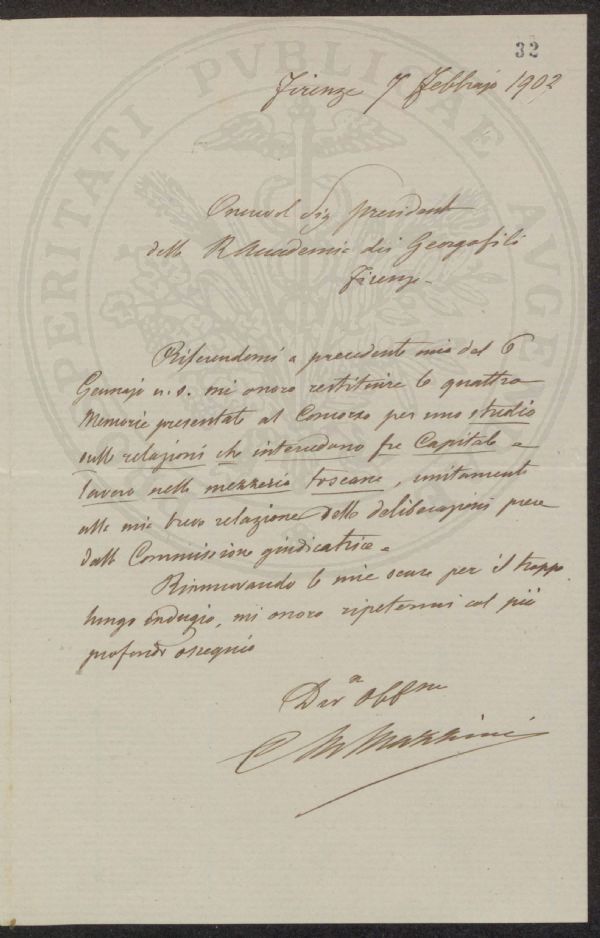 32
PROSPERITATI PVBLICAE AVGENDAE
Firenze 7 Febbrajo 1902
Onorevol Sig Presidente
della R Accademia dei Georgofili
Firenze -
Riferendomi a precedente mia del 6
Gennajo u. s. mi onoro restituire le quattro
Memorie presentate al Concorso per uno studio
sulle relazioni che intercedono fra Capitale e
lavoro nella mezzeria toscana, unitamente
alla mia breve relazione delle deliberazioni prese
dalla Commissione giudicatrice.
Rinnovando le mie scuse per il troppo
lungo indugio, mi onoro ripetermi col più
profondo ossequio
Dev Obbmo
C M Mazzini